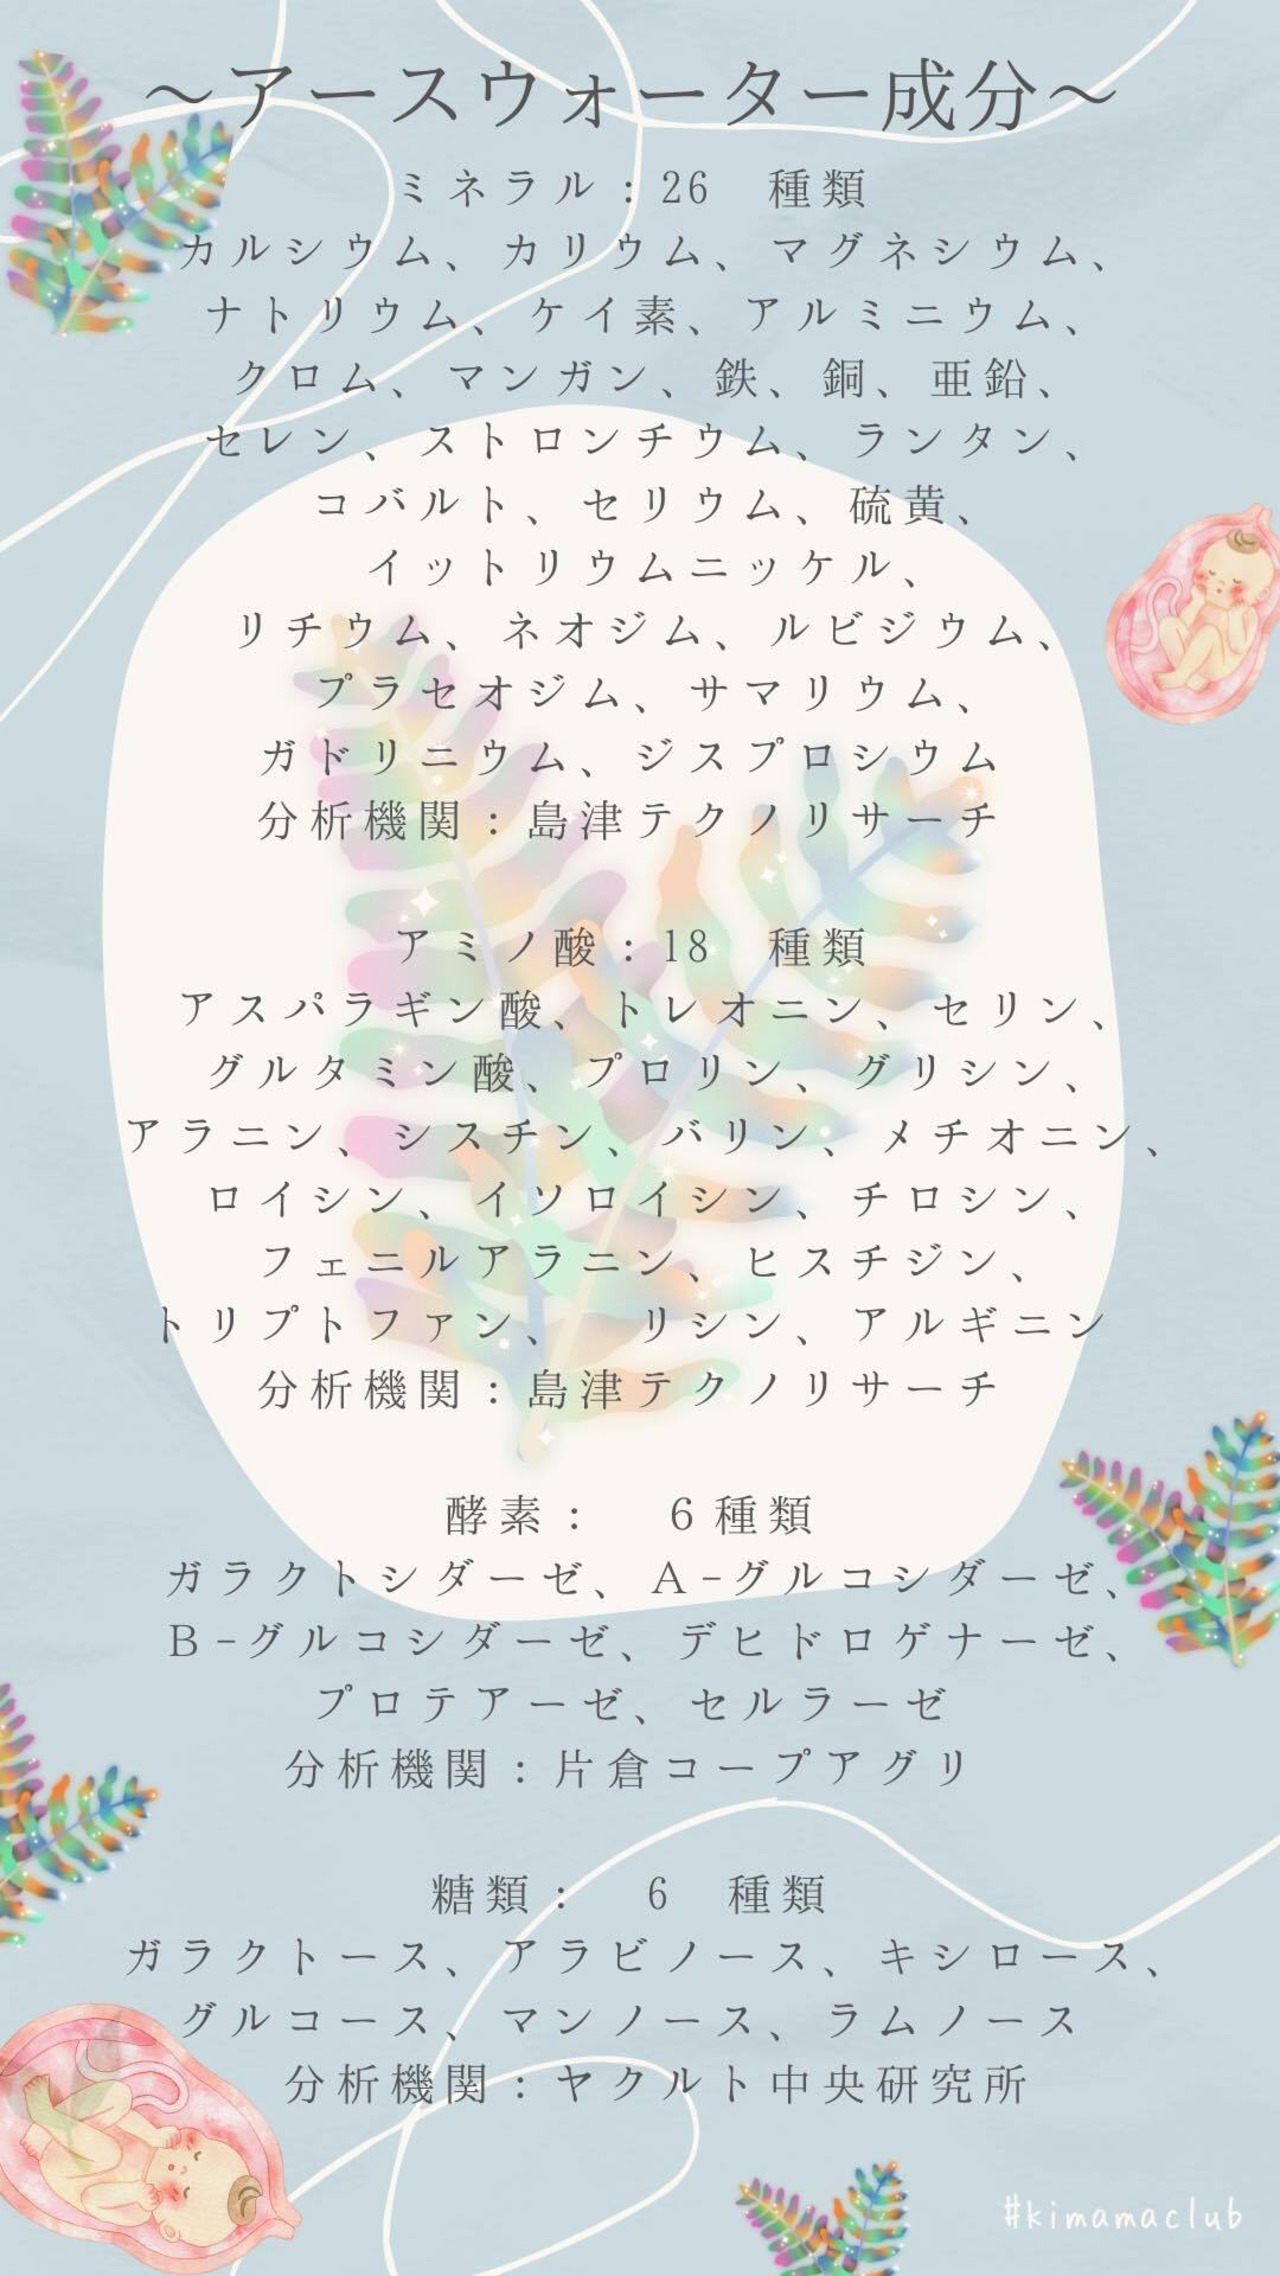 ～アースウォーター成分～
ミネラル：26　種類
カルシウム、カリウム、マグネシウム、
ナトリウム、ケイ素、アルミニウム、
クロム、マンガン、鉄、銅、亜鉛、
セレン、ストロンチウム、ランタン、
コバルト、セリウム、硫黄、
イットリウムニッケル、
リチウム、ネオジム、ルビジウム、
プラセオジム、サマリウム、
ガドリニウム、ジスプロシウム
分析機関：島津テクノリサーチ
アミノ酸：18　種類
アスパラギン酸、トレオニン、セリン、
グルタミン酸、プロリン、グリシン、
アラニン、シスチン、バリン、メチオニン、
ロイシン、イソロイシン、チロシン、
フェニルアラニン、ヒスチジン、
トリプトファン、　リシン、アルギニン
分析機関：島津テクノリサーチ
酵素：　６種類
ガラクトシダーゼ、Ａ-グルコシダーゼ、
Ｂ-グルコシダーゼ、デヒドロゲナーゼ、
プロテアーゼ、セルラーゼ
分析機関：片倉コープアグリ
糖類：　6　種類
ガラクトース、アラビノース、キシロース、
グルコース、マンノース、ラムノース
分析機関：ヤクルト中央研究所
#kimamaclub